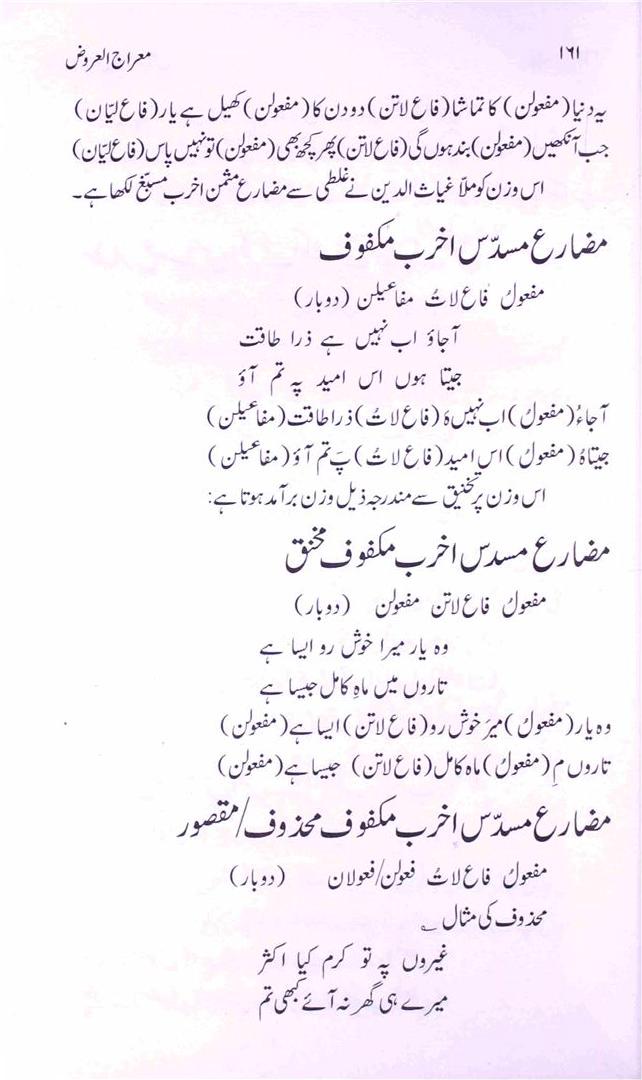 ۱۶۱ معراج العروض
یہ دنیا (مفعولن) کا تماشا (فاع لاتن) دو دن کا (مفعولن) کھیل ہے یار (فاع لیّان)
جب آنکھیں (مفعولن) بند ہوں گی (فاع لاتن) پھر کچھ بھی (مفعولن) تو نہیں پاس (فاع لیّان)
اس وزن کو ملّا غیاث الدین نے غلطی سے مضارع مثمن اخرب مسبّغ لکھا ہے۔
مضارع مسدّس اخرب مکفوف
مفعولُ فاع لاتُ مفاعیلن (دوبار)
آ جاؤ اب نہیں ہے ذرا طاقت
جیتا ہوں اس امید پہ تم آؤ
آ جاءُ (مفعولُ) اب نہیں ہَ (فاع لاتُ) ذرا طاقت (مفاعیلن)
جیتا ہُ (مفعولُ) اس امید (فاع لاتُ) پَ تم آؤ (مفاعیلن)
اس وزن پر تخنیق سے مندرجہ ذیل وزن برآمد ہوتا ہے:
مضارع مسدس اخرب مکفوف مخنق
مفعولُ فاع لاتن مفعولن (دوبار)
وہ یار میرا خوش رو ایسا ہے
تاروں میں ماہِ کامل جیسا ہے
وہ یار (مفعولُ) میرَ خوش رو (فاع لاتن) ایسا ہے (مفعولن)
تاروں مِ (مفعولُ) ماہ کامل (فاع لاتن) جیسا ہے (مفعولن)
مضارع مسدّس اخرب مکفوف محذوف/مقصور
مفعولُ فاع لاتُ فعولن/فعولان (دوبار)
محذوف کی مثال ؎
غیروں پہ تو کرم کیا اکثر
میرے ہی گھر نہ آئے کبھی تم